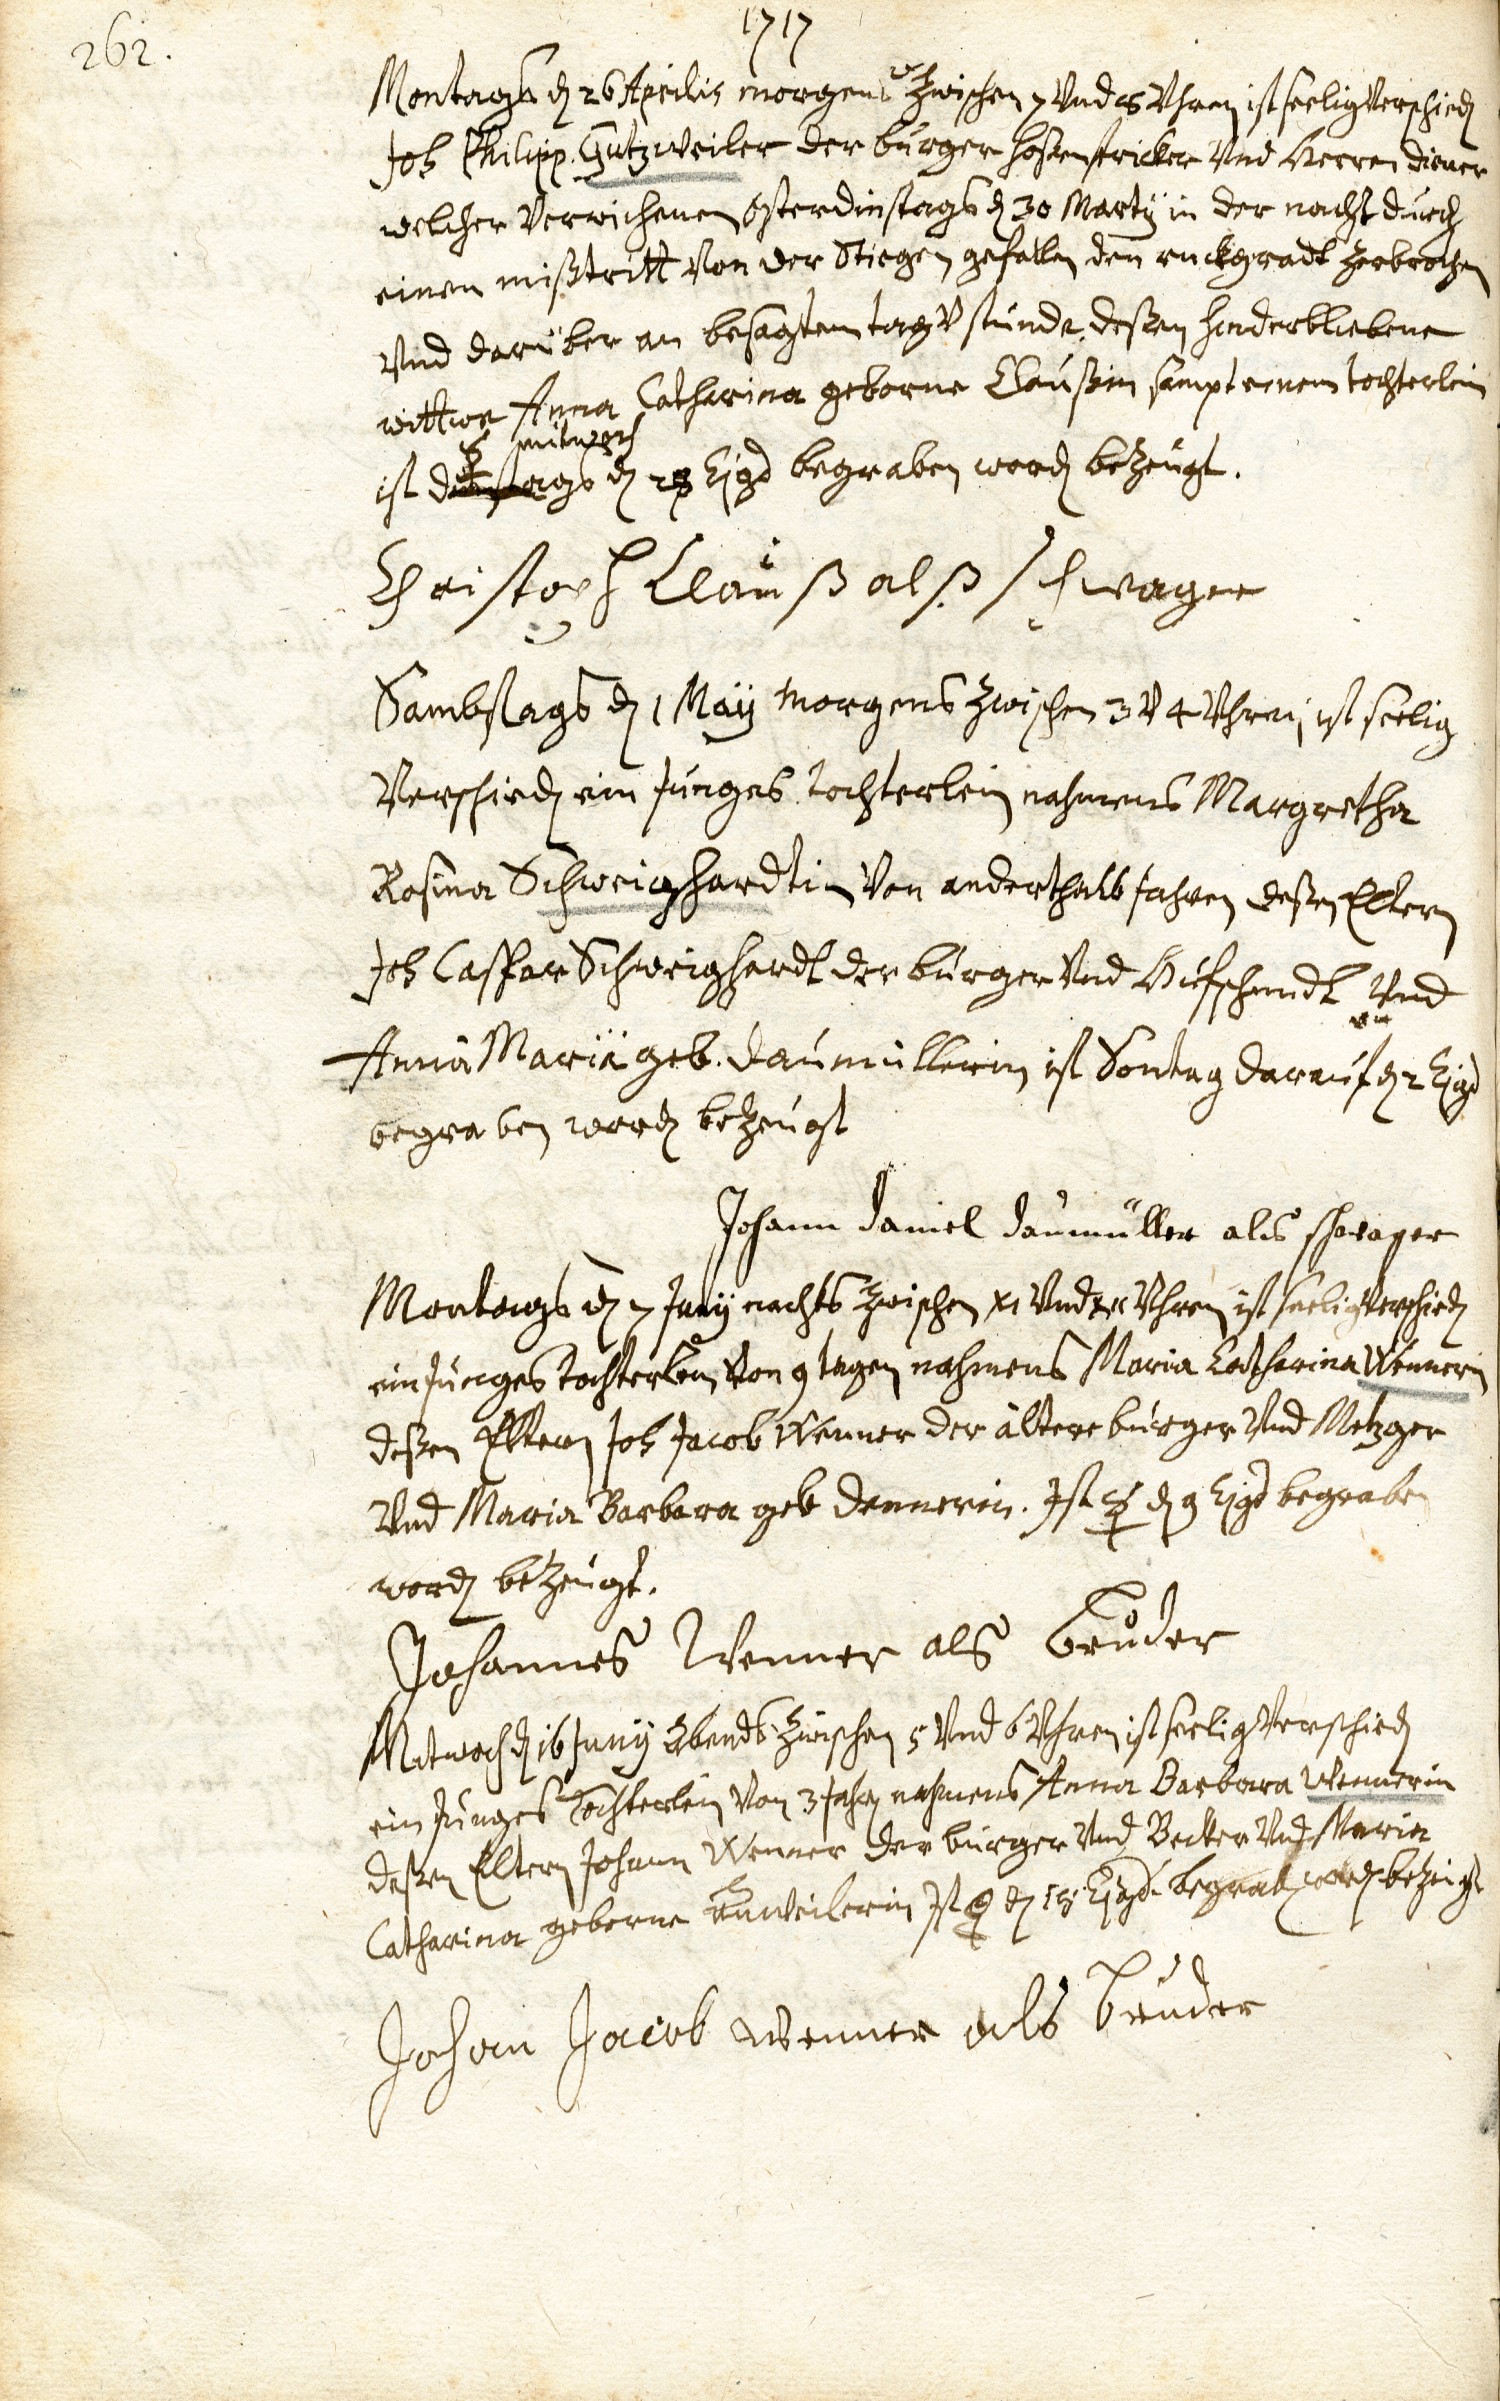 262.
1717
Montags d 26 Aprilis morgens zwischen 7 Vnd 8 Vhren ist seelig Verschied
Joh Philipp Gutzweiler der burger hosenstricker Vnd Herren diener
welcher Verwichenen Osterdinstags d 30 Marty in der nacht durch
einen mißtritt Von der Stiegen gefallen den ruckgradt zerbrochen
Vnd darüber an besagtem tag V stunde deßen hinderbliebene
wittwe Anna Catharina geborne Claußin sampt einem tochterlein
mitwoch
ist dinstags d 28 Ejsd begraben word bezeugt.
Christoph Clauß alß schwager
Sambstags d 1 Maÿ morgens zwischen 3 V 4 Vhren ist seelig
Verschied ein junges tochterlein nahmens Margretha
Rosina Schweighardtin Von anderthalb jahren deßen Eltern
Joh Caspar Schweighardt der burger Vnd Hufschmidt Vnd
Anna Maria geb. Daumüllerin ist Sontag darauf d 2 Ejsd
begraben word bezeugt
Johann Daniel Daumüller als schwager
Montags d 7 Juny nachts zwischen XI Vnd XII Vhren ist seelig Verschied
ein junges tochterlein Von 9 tagen nahmens Maria Catharina Wennerin
deßen Eltern Joh Jacob Wenner der ältere burger Vnd Metzger
Vnd Maria Barbara geb Dennerin. Ist ☿ d 9 Ejsd begraben
word bezeugt.
Johannes Wenner als bruder
Mitwoch d 16 Juny Abends zwischen 5 Vnd 6 Vhren ist seelig Verschied
ein junges tochterlein Von 3 jahr nahmens Anna Barbara Wennerin
deßen Eltern Johann Wenner der burger Vnd Becker Vnd Maria
Catharina geborne Anweilerin Ist d 18 Ejsd. begrab word bezeugt
Johan Jacob wenner als bruder